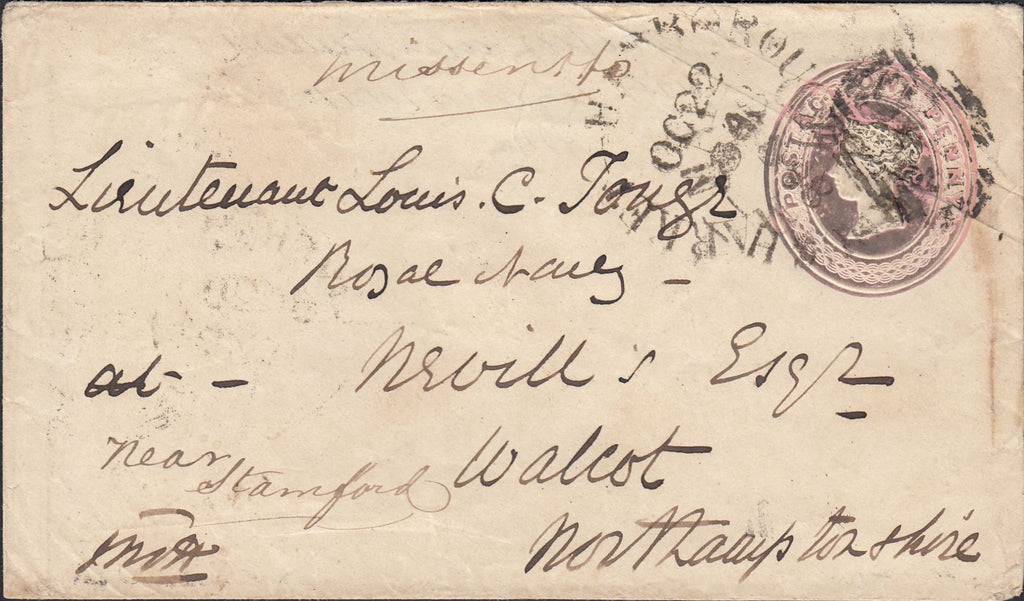 missent to
HARBOROUGH
OC 22
POSTAGE ONE PENNY
Lieutenant Louis. C. Tonge
Royal Navy -
at - Nevill's Esqr
Walcot
near
Stamford
Northamptonshire